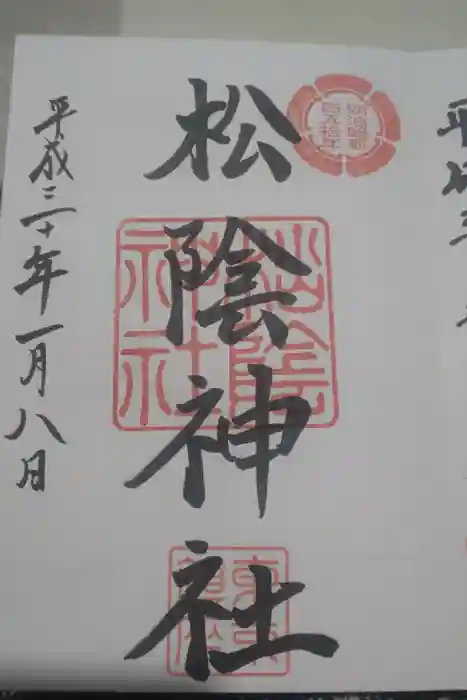 松陰神社
平成三十年一月八日
明治維新
百五拾年
松陰
神社
東京